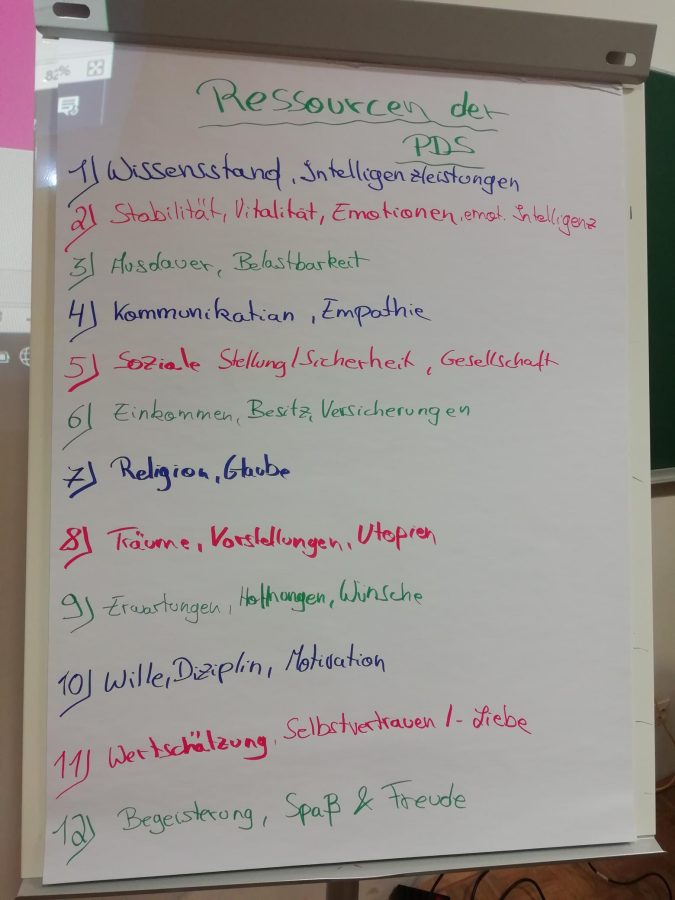 82%
Ressourcen der
PDS
1) Wissensstand, Intelligenzleistungen
2) Stabilität, Vitalität, Emotionen, emot. Intelligenz
3) Ausdauer, Belastbarkeit
4) Kommunikation, Empathie
5) Soziale Stellung/Sicherheit, Gesellschaft
6) Einkommen, Besitz, Versicherungen
7) Religion, Glaube
8) Träume, Vorstellungen, Utopien
9) Erwartungen, Hoffnungen, Wünsche
10) Wille, Diziplin, Motivation
11) Wertschätzung, Selbstvertrauen /-Liebe
12) Begeisterung, Spaß & Freude